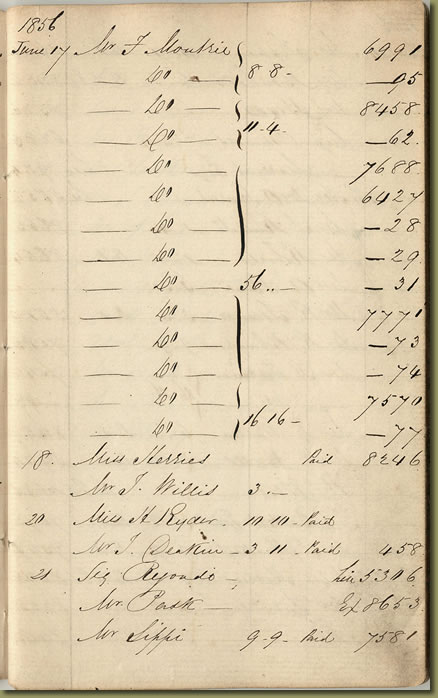 1856
June 17 Mr F. Moutrie 6991
— Do — 8 8 - — 95
— Do — 8458
— Do — 11-4- — 62
— Do — 7688
— Do — 6427
— Do — — 28
— Do — — 29
— Do — 56 .. — — 31
— Do — 7771
— Do — — 73
— Do — — 74
— Do — 7570
— Do — 16 16 - — 77
18. Miss Kerries Paid 8246
Mr T. Willis 3 .. —
20 Miss A Ryder - 10 10 - Paid
Mr J. Deakin - 3 11 - Paid 458
21 Sig Regondi - Lin 5306
Mr. Pask — Ex 8653
Mr Sippi 9-9- Paid 7581